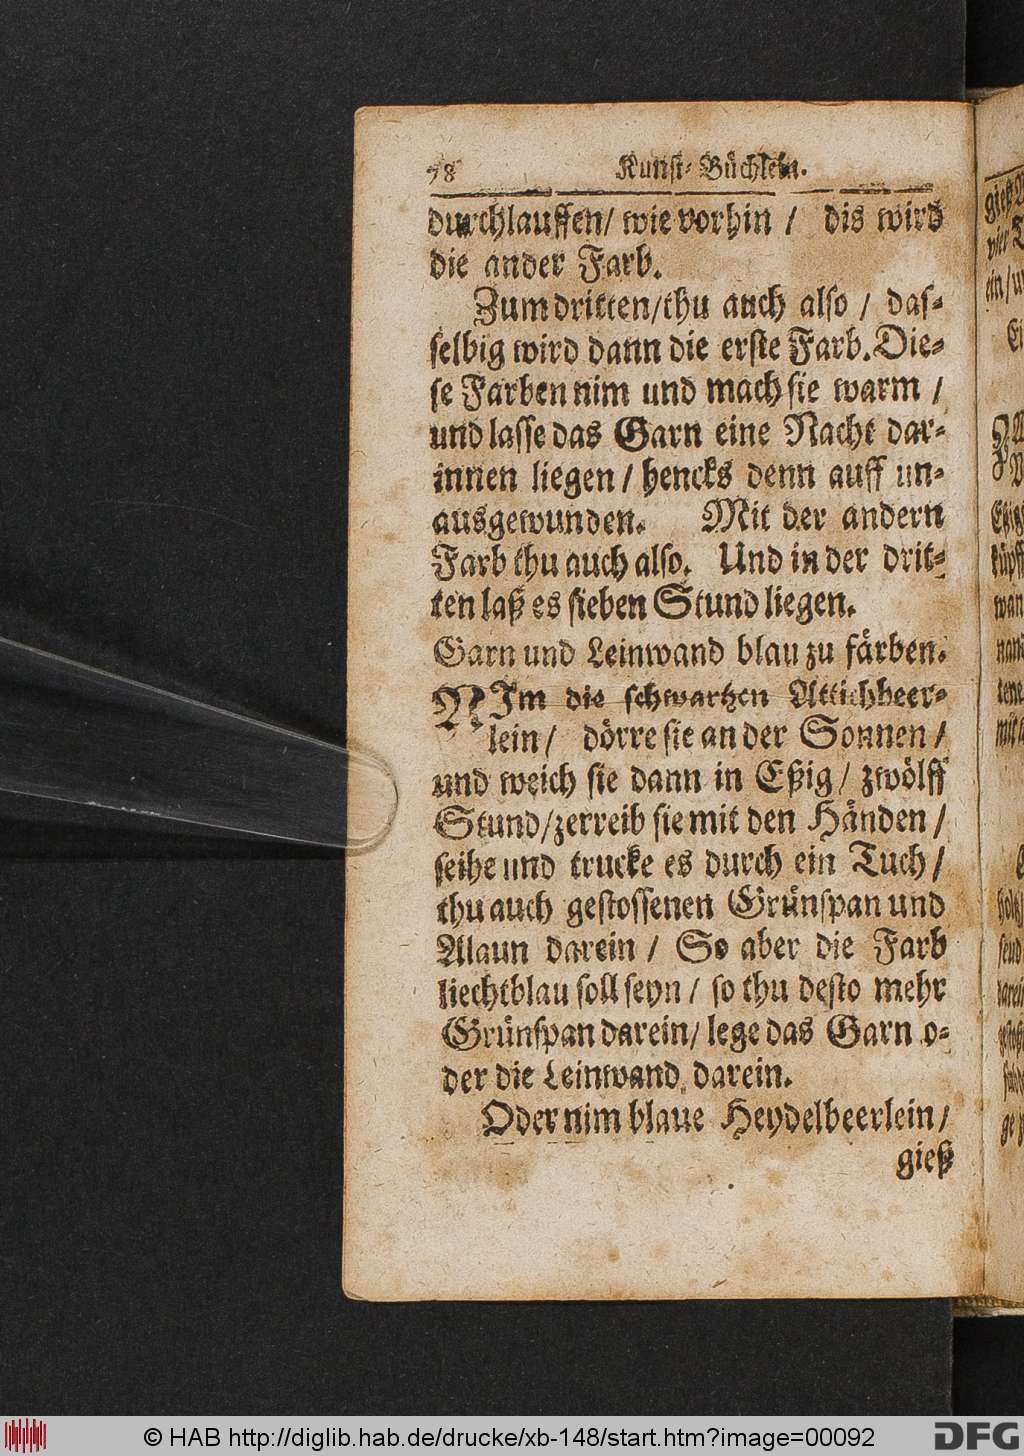 78 Kunst-Büchlein.
durchlauffen/ wie vorhin / dis wird
die ander Farb.
Zum dritten/thu auch also / das-
selbig wird dann die erste Farb. Die-
se Farben nim und mach sie warm /
und lasse das Garn eine Nacht dar-
innen liegen / hencks denn auff un-
ausgewunden. Mit der andern
Farb thu auch also. Und in der drit-
ten laß es sieben Stund liegen.
Garn und Leinwand blau zu färben.
NIm die schwartzen Attichbeer-
lein / dörre sie an der Sonnen /
und weich sie dann in Eßig / zwölff
Stund/zerreib sie mit den Händen /
seihe und trucke es durch ein Tuch /
thu auch gestossenen Grünspan und
Alaun darein / So aber die Farb
liechtblau soll seyn / so thu desto mehr
Grünspan darein/ lege das Garn o-
der die Leinwand darein.
Oder nim blaue Heydelbeerlein /
gieß
© HAB http://diglib.hab.de/drucke/xb-148/start.htm?image=00092
DFG